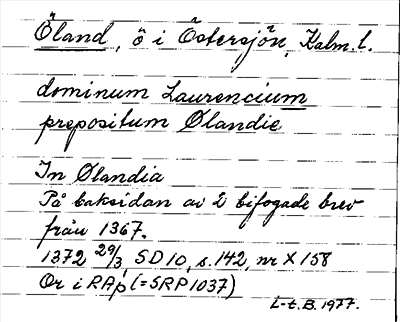 Öland, ö i Östersjön, Kalm. l.
dominum Laurencium
prepositum Ølandie
In Ølandia
På baksidan av 2 bifogade brev
från 1367.
1372 29/3, SD 10, s. 142, nr X 158
Or i RAp (= SRP 1037)
L-t. B. 1977.